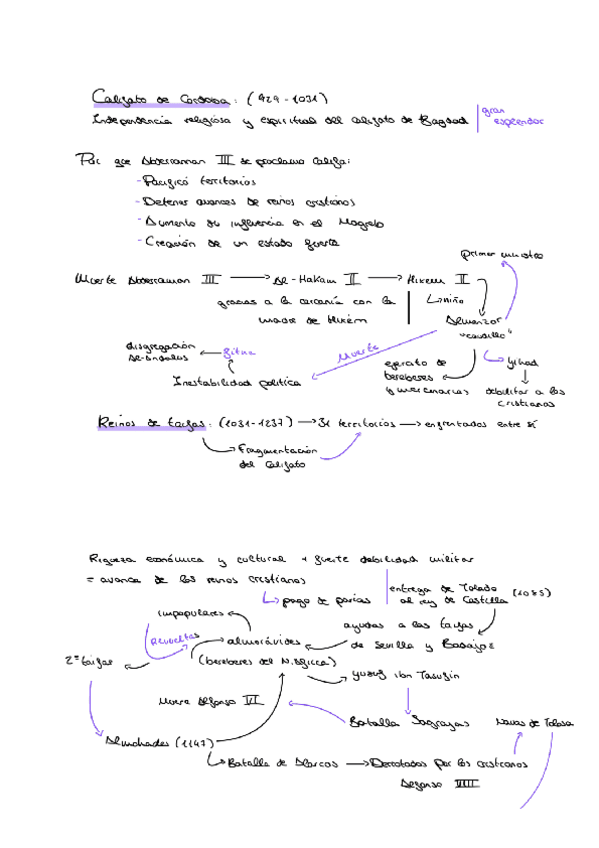 Califato de Cordoba: (929-1031)
Independencia religiosa y espiritual del califato de Bagdad
gran
esplendor
Por que Abderraman III se proclamo califa:
-Pacificó territorios
-Detener avances de reinos cristianos
-Aumento su influencia en el Magreb
-Creación de un estado fuerte
primer ministro
Muerte Abderraman III → Al-Hakam II → Hixem II
gracias a la cercania con la
madre de Hixem
niño
Almanzor
"caudillo"
disgregación
Al-Andalus
fitna
Muerte
Inestabilidad politica
ejercito de
bereberes
y mercenarios
yihad
debilitar a los
cristianos
Reinos de taifas: (1031-1237) → 31 territorios → enfrentados entre sí
Fragmentación
del Califato
Riqueza económica y cultural + fuerte debilidad militar
= avance de los reinos cristianos
pago de parias
entrega de Toledo
al rey de Castilla (1085)
impopulares
revueltas
ayudas a las taifas
de Sevilla y Badajoz
almorávides
(bereberes del N.África)
2ª taifas
yusuf ibn Tasufin
Muere Alfonso VI
Batalla Sagrajas
Navas de Tolosa
Almohades (1147)
Batalla de Alarcos → Derrotados por los cristianos
Alfonso VIII